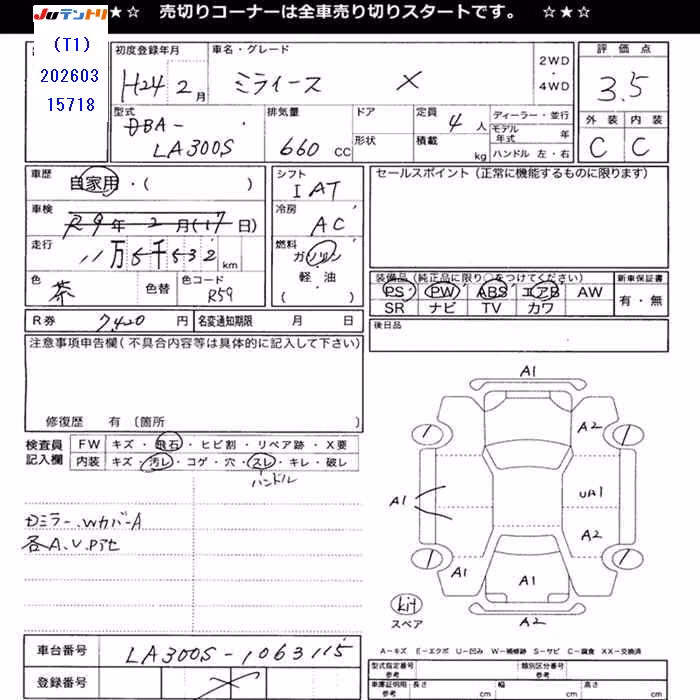 Juテントリ ★☆ 売切りコーナーは全車売り切りスタートです。 ☆★☆
(T1)
202603
15718
初度登録年月 車名・グレード 2WD ・ 4WD 評価点
H24 2月 ミライース X 3.5
型式 排気量 ドア 定員 4人 ディーラー・並行 外装 内装
DBA- モデル年式 年 C C
LA300S 660 CC 形状 積載 kg ハンドル 左・右
車歴 シフト セールスポイント(正常に機能するものに限ります)
自家用・( ) IAT
車検 冷房
R9年2月(17日) AC
走行 燃料
11万5千532 km ガソリン
色 色替 色コード 軽・油 装備品(純正品に限り○をつけてください) 新車保証書
茶 R59 ( ) PS PW ABS エアB AW 有・無
SR ナビ TV カワ
R券 7420円 名変通知期限 月 日 後日品
注意事項申告欄(不具合内容等は具体的に記入して下さい)
修復歴 有〔箇所 〕
検査員記入欄 FW キズ・飛石・ヒビ割・リペア跡・X要
内装 キズ・汚レ・コゲ・穴・スレ・キレ・破レ
ハンドル
Dミラー.WカバーA
各A.U.Pアセ
A1
A2
1
1
A1
UA1
A2
1
1
A1
A1
A2
kit
スペア
A-キズ E-エクボ U-凹み W-補修跡 S-サビ C-腐食 XX-交換済
車台番号 LA300S-1063115
登録番号
型式指定番号 参考 類別区分番号
車庫証明用 参考 長さ cm 幅 cm 高さ cm